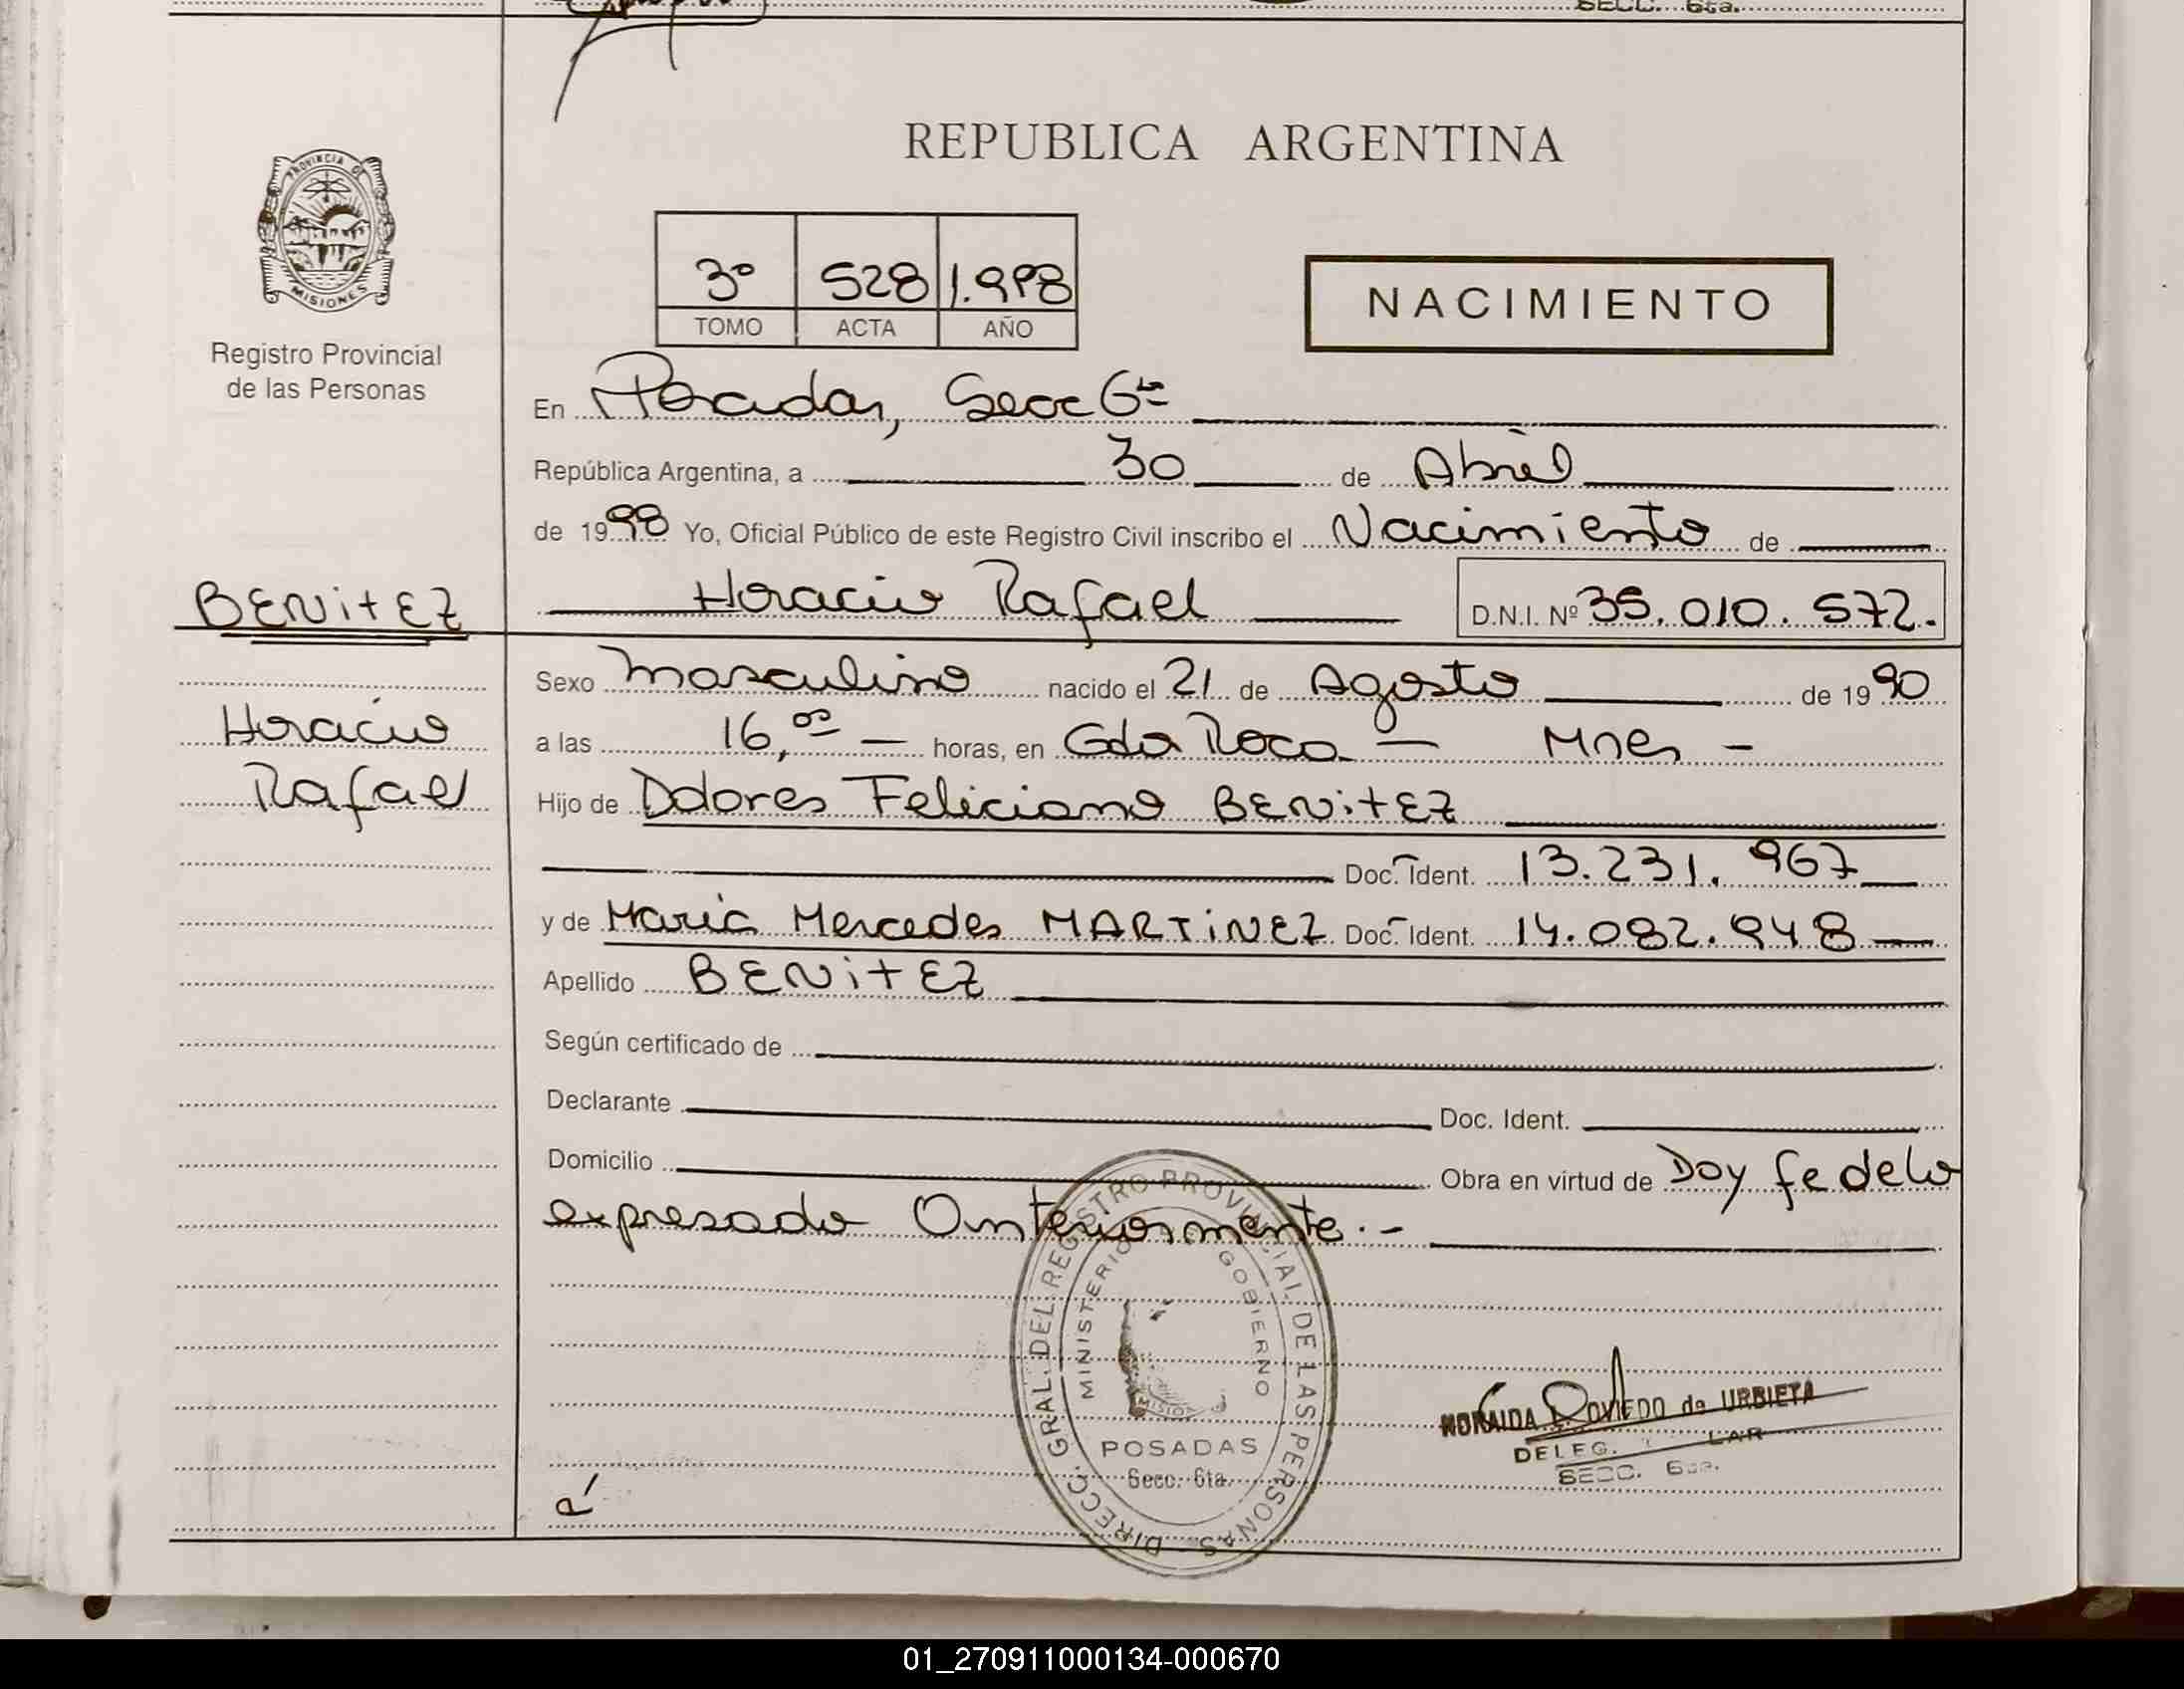 SECC. 6ta.
REPUBLICA ARGENTINA
PROVINCIA DE
MISIONES
Registro Provincial
de las Personas
3º 528 1.998
TOMO ACTA AÑO
NACIMIENTO
En Posadas, Secc 6ta
República Argentina, a 30 de Abril
de 1998 Yo, Oficial Público de este Registro Civil inscribo el Nacimiento de
BENITEZ
Horacio Rafael D.N.I. Nº 35.010.572.
Sexo Masculino nacido el 21 de Agosto de 1990
Horacio
a las 16,00 — horas, en Gdor Roca — Mnes —
Rafael
Hijo de Dolores Feliciano BENITEZ
Doc. Ident. 13.231.967
y de Maria Mercedes MARTINEZ Doc. Ident. 14.082.948
Apellido BENITEZ
Según certificado de
Declarante Doc. Ident.
Domicilio Obra en virtud de Doy fe de lo
expresado Anteriormente.-
DIRECC. GRAL. DEL REGISTRO PROVINCIAL DE LAS PERSONAS
MINISTERIO GOBIERNO
MISIONES
POSADAS
Secc. 6ta.
NORAIDA OVIEDO de URBIETA
DELEG.
SECC. 6ta.
01_270911000134-000670